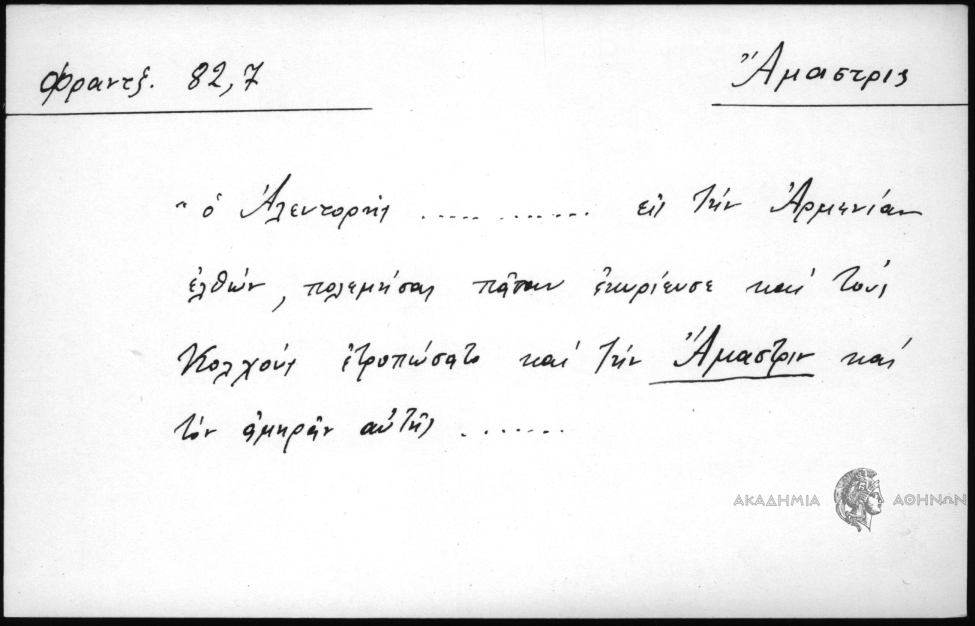 Φραντζ. 82,7
Ἄμαστρις
"ὁ Ἀλεντορῆς ..... ....... εἰς τὴν Ἀρμενίαν
ἐλθών, πολεμήσας πᾶσαν ἐκυρίευσε καὶ τοὺς
Κολχοὺς ἐτροπώσατο καὶ τὴν Ἄμαστριν καὶ
τὸν ἀμηρᾶν αὐτῆς .......
ΑΚΑΔΗΜΙΑ ΑΘΗΝΩΝ